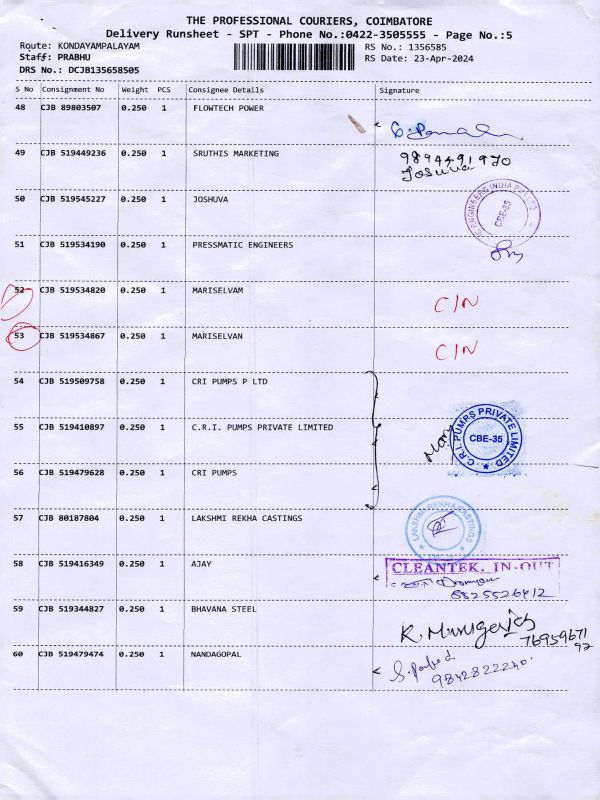 THE PROFESSIONAL COURIERS, COIMBATORE
Delivery Runsheet - SPT - Phone No.:0422-3505555 - Page No.:5
Route: KONDAYAMPALAYAM
RS No.: 1356585
Staff: PRABHU
RS Date: 23-Apr-2024
DRS No.: DCJB135658505
S No Consignment No Weight PCS Consignee Details Signature
48 CJB 89803507 0.250 1 FLOWTECH POWER
49 CJB 519449236 0.250 1 SRUTHIS MARKETING 9894491970
Josuva
50 CJB 519545227 0.250 1 JOSHUVA
ENGINEERS INDIA PVT LTD
CBE-35
51 CJB 519534190 0.250 1 PRESSMATIC ENGINEERS
52 CJB 519534820 0.250 1 MARISELVAM C/N
53 CJB 519534867 0.250 1 MARISELVAN C/N
54 CJB 519509758 0.250 1 CRI PUMPS P LTD
55 CJB 519410897 0.250 1 C.R.I. PUMPS PRIVATE LIMITED
C.R.I. PUMPS PRIVATE LIMITED
CBE-35
56 CJB 519479628 0.250 1 CRI PUMPS
57 CJB 80187804 0.250 1 LAKSHMI REKHA CASTINGS
LAKSHMI REKHA CASTINGS
58 CJB 519416349 0.250 1 AJAY
CLEANTEK, IN-OUT
8825526412
59 CJB 519344827 0.250 1 BHAVANA STEEL
K. 
76959671
92
60 CJB 519479474 0.250 1 NANDAGOPAL
9842822240